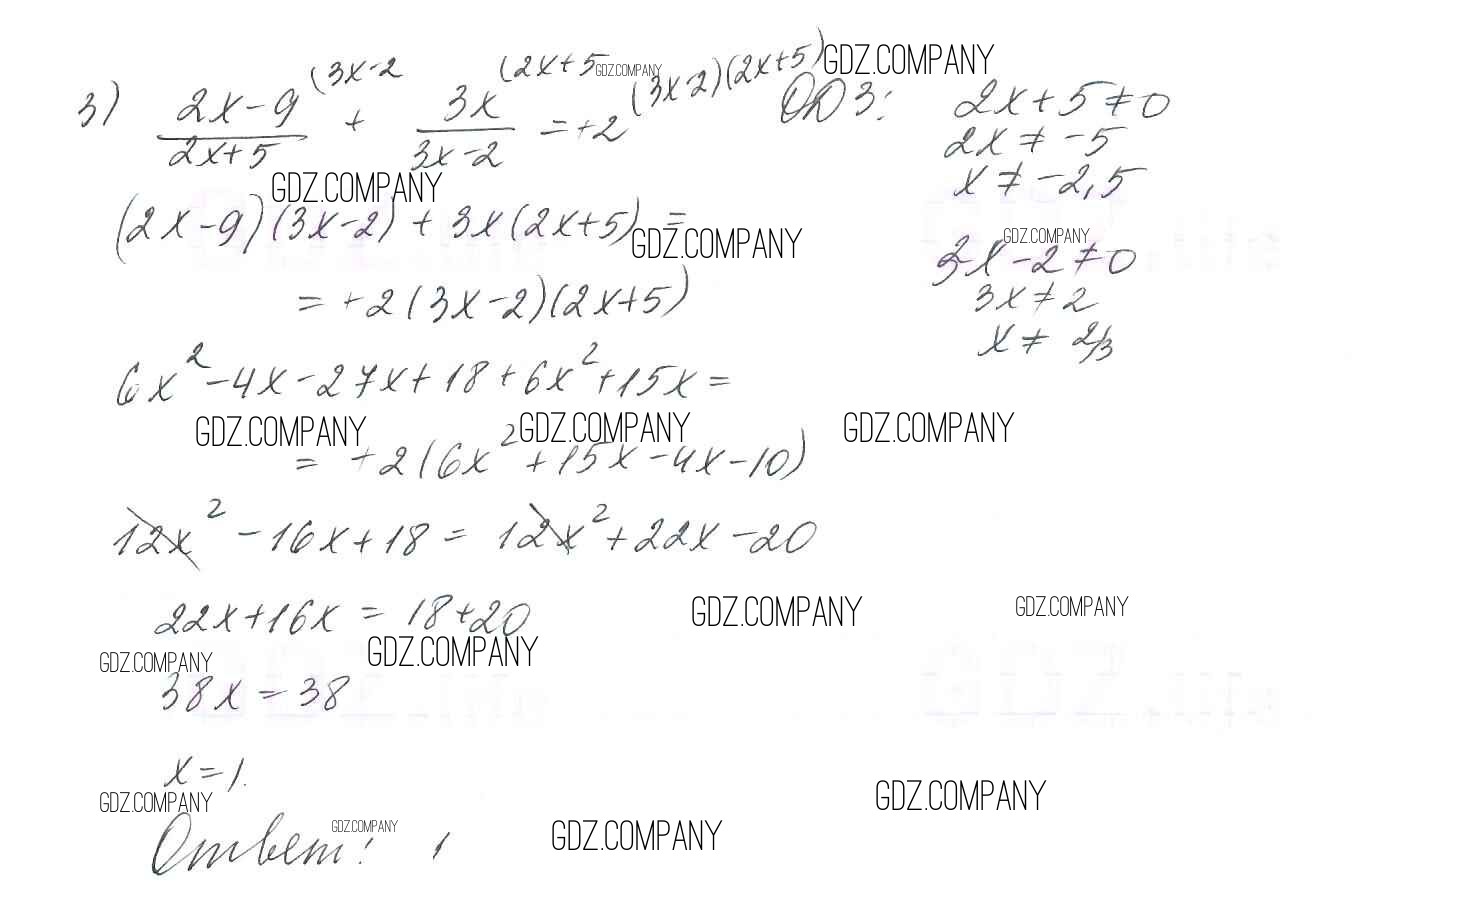 3) (2x-9)/(2x+5) (3x-2 + 3x/(3x-2) (2x+5 = +2 (3x-2)(2x+5) ОДЗ: 2x+5≠0
GDZ.COMPANY GDZ.COMPANY
2x≠-5
x≠-2,5
GDZ.COMPANY
(2x-9)(3x-2)+3x(2x+5)=
GDZ.COMPANY GDZ.COMPANY
3x-2≠0
=+2(3x-2)(2x+5)
3x≠2
x≠2/3
6x²-4x-27x+18+6x²+15x=
GDZ.COMPANY GDZ.COMPANY GDZ.COMPANY
=+2(6x²+15x-4x-10)
12x²-16x+18=12x²+22x-20
22x+16x=18+20
GDZ.COMPANY GDZ.COMPANY
GDZ.COMPANY GDZ.COMPANY
38x=38
x=1.
GDZ.COMPANY GDZ.COMPANY
Ответ: 1
GDZ.COMPANY GDZ.COMPANY